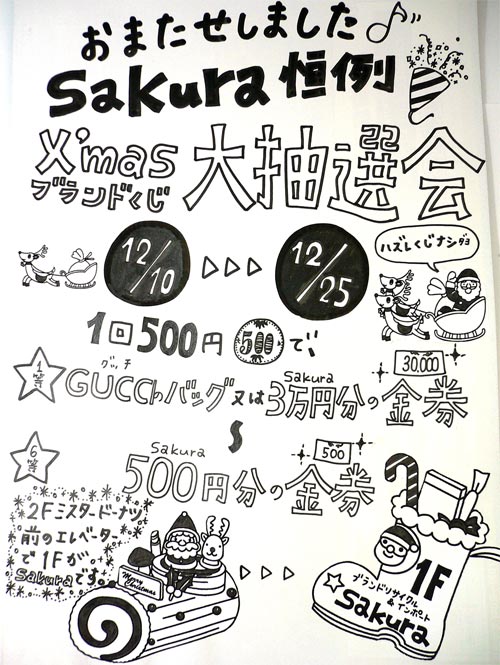 おまたせしました♪
Sakura 恒例
X'mas
ブランドくじ
大抽選会
12/10
12/25
ハズレくじナシダヨ
1回500円 500 で、
1等
グッチ
GUCCIのバッグ又は
Sakura
3万円分の金券
30,000
6等
Sakura
500円分の金券
500
2Fミスタードーナツ
前のエレベーター
で1Fが
Sakuraです。
Merry
Christmas
1F
ブランドリサイクル
& インポート
Sakura